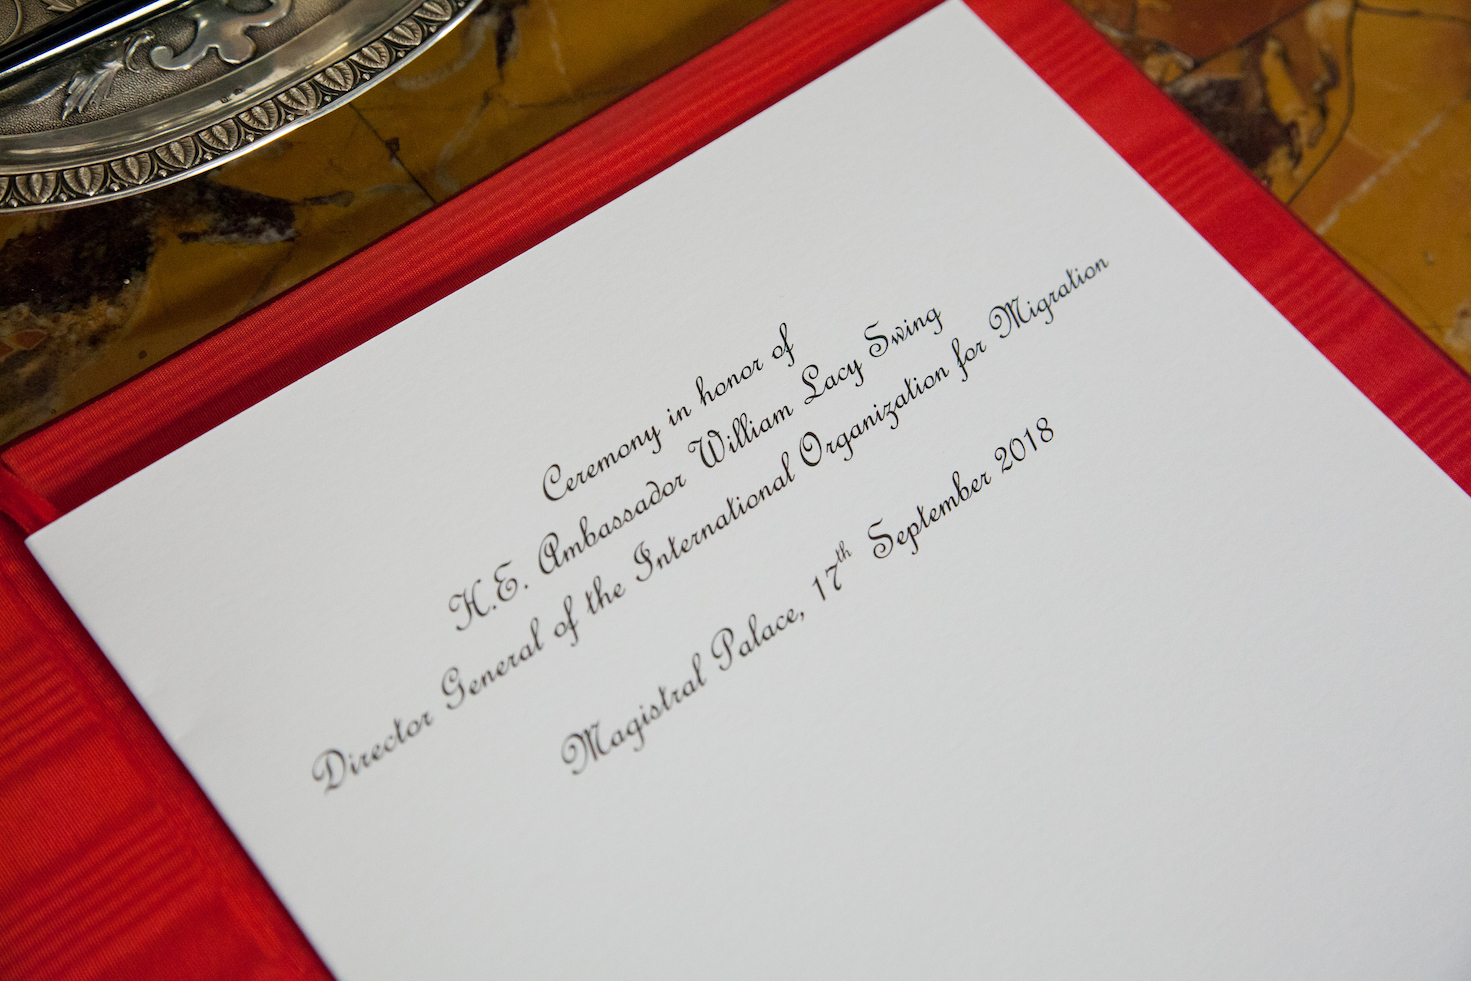 Ceremony in honor of
H.E. Ambassador William Lacy Swing
Director General of the International Organization for Migration
Magistral Palace, 17th September 2018